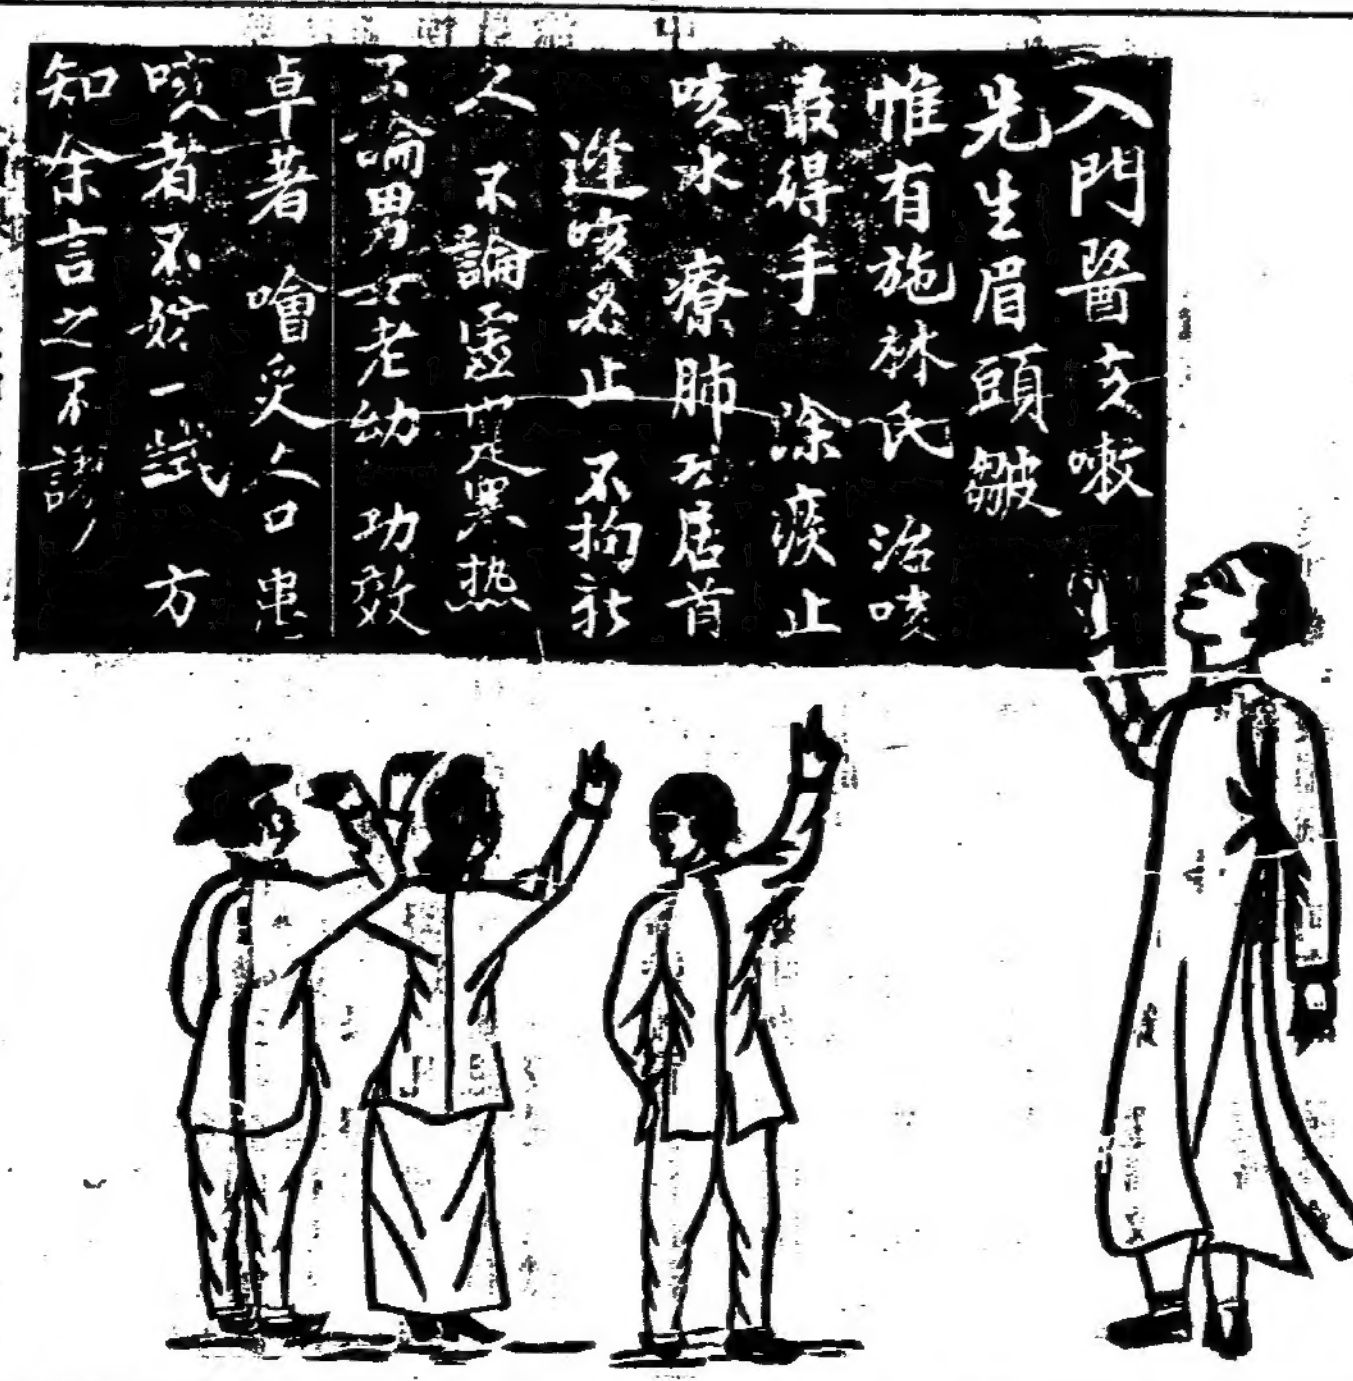 入門醫亥嗽
先生眉頭皺
惟有施林氏 治咳
最得手 除痰止
咳水 療肺功居首
逢咳必止 不拘新
久 不論虛實寒熱
不論男女老幼 功效
卓著 噲炙人口 患
咳者不妨一試 方
知余言之不謬